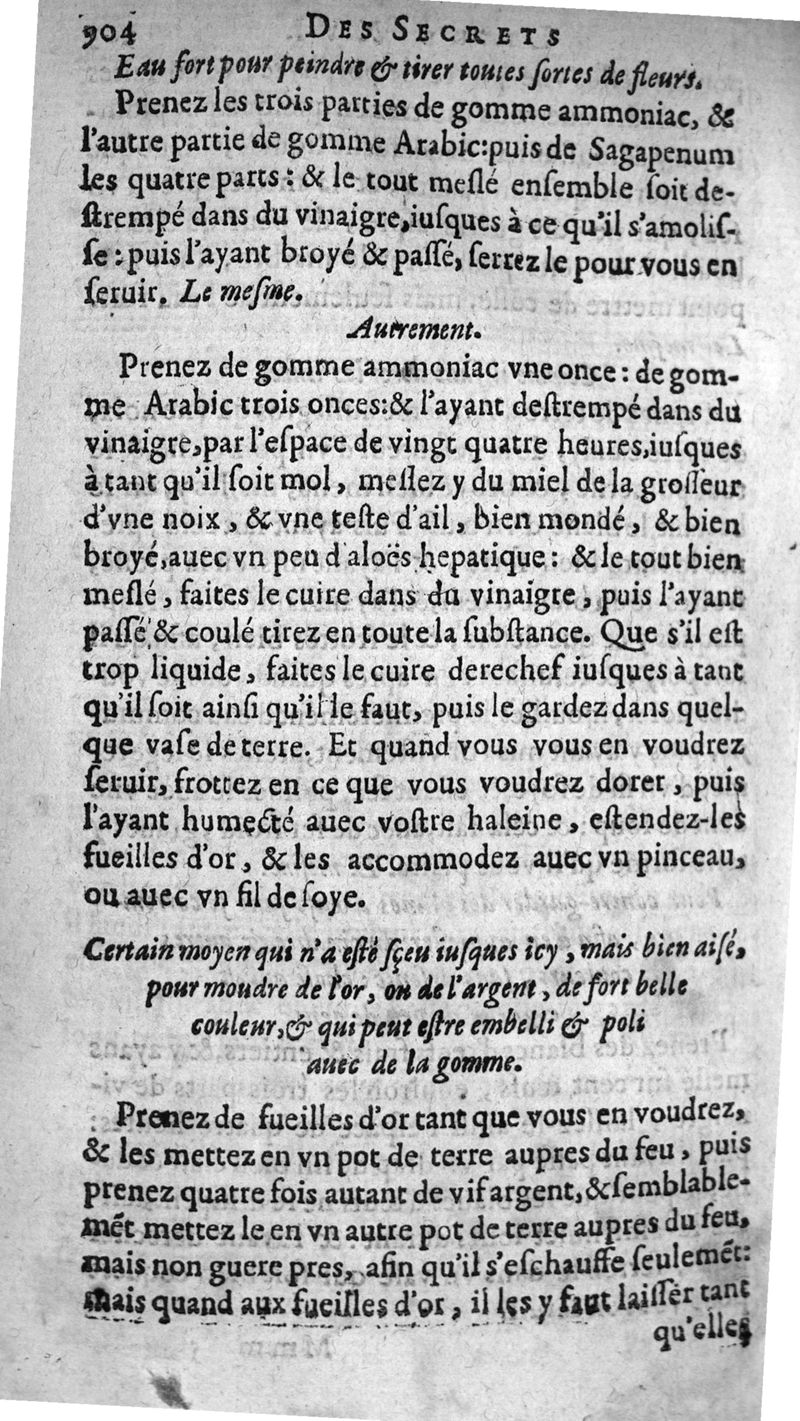 904 DES SECRETS
Eau fort pour peindre & tirer toutes ſortes de fleurs.
Prenez les trois parties de gomme ammoniac, &
l'autre partie de gomme Arabic: puis de Sagapenum
les quatre parts : & le tout meſlé enſemble ſoit de-
ſtrempé dans du vinaigre, iuſques à ce qu'il s'amoliſ-
ſe : puis l'ayant broyé & paſſé, ſerrez le pour vous en
ſeruir. Le meſme.
Autrement.
Prenez de gomme ammoniac vne once : de gom-
me Arabic trois onces: & l'ayant deſtrempé dans du
vinaigre, par l'eſpace de vingt quatre heures, iuſques
à tant qu'il ſoit mol, meſlez y du miel de la groſſeur
d'vne noix, & vne teſte d'ail, bien mondé, & bien
broyé, auec vn peu d'aloës hepatique : & le tout bien
meſlé, faites le cuire dans du vinaigre, puis l'ayant
paſſé & coulé tirez en toute la ſubſtance. Que s'il eſt
trop liquide, faites le cuire derechef iuſques à tant
qu'il ſoit ainſi qu'il le faut, puis le gardez dans quel-
que vaſe de terre. Et quand vous vous en voudrez
ſeruir, frottez en ce que vous voudrez dorer, puis
l'ayant humecté auec voſtre haleine, eſtendez-les
fueilles d'or, & les accommodez auec vn pinceau,
ou auec vn fil de ſoye.
Certain moyen qui n'a eſté ſçeu iuſques icy, mais bien aiſé,
pour moudre de l'or, ou de l'argent, de fort belle
couleur, & qui peut eſtre embelli & poli
auec de la gomme.
Prenez de fueilles d'or tant que vous en voudrez,
& les mettez en vn pot de terre aupres du feu, puis
prenez quatre fois autant de vif argent, & ſemblable-
mẽt mettez le en vn autre pot de terre aupres du feu,
mais non guere pres, afin qu'il s'eſchauffe ſeulemẽt:
mais quand aux fueilles d'or, il les y faut laiſſer tant
qu'elles